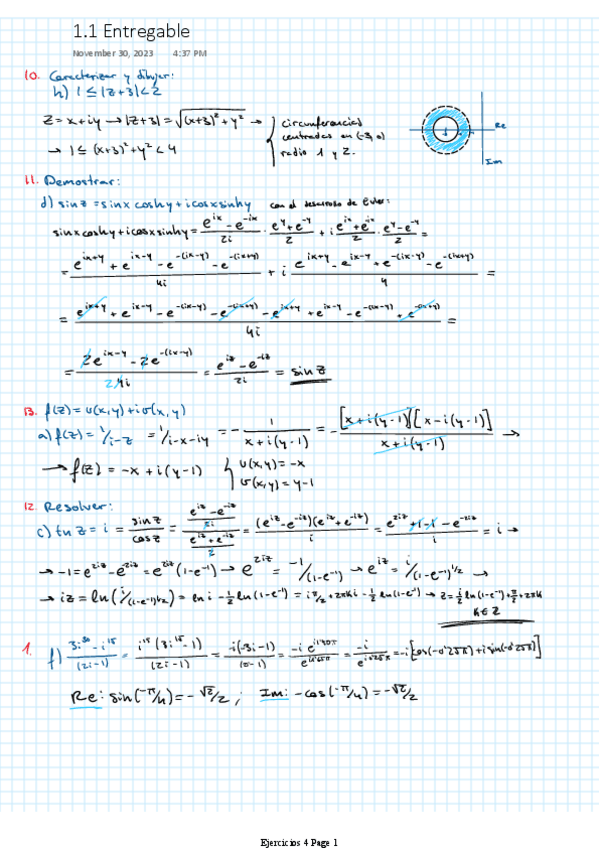 1.1 Entregable
November 30, 2023 4:37 PM
10. Caracterizar y dibujar:
h) 1 ≤ |z+3| < 2
z = x+iy → |z+3| = √((x+3)² + y²) → { circunferencias centradas en (-3,0) radio 1 y 2.
→ 1 ≤ (x+3)² + y² < 4
Re
Im
11. Demostrar:
d) sin z = sin x cosh y + i cos x sinh y con el desarrollo de Euler:
sin x cosh y + i cos x sinh y = (e^{ix} - e^{-ix})/2i · (e^y + e^{-y})/2 + i (e^{ix} + e^{-ix})/2 · (e^y - e^{-y})/2 =
= (e^{ix+y} + e^{ix-y} - e^{-(ix-y)} - e^{-(ix+y)})/4i + i (e^{ix+y} - e^{ix-y} + e^{-(ix-y)} - e^{-(ix+y)})/4 =
= (e^{ix+y} + e^{ix-y} - e^{-(ix-y)} - e^{-(ix+y)} - e^{ix+y} + e^{ix-y} - e^{-(ix-y)} + e^{-(ix+y)})/4i =
= (2e^{ix-y} - 2e^{-(ix-y)})/4i = (e^{iz} - e^{-iz})/2i = sin z
13. f(z) = u(x,y) + iv(x,y)
a) f(z) = 1/i-z = 1/i-x-iy = - 1/(x+i(y-1)) = - [x+i(y-1)][x-i(y-1)]/(x+i(y-1)) →
→ f(z) = -x + i(y-1) { u(x,y) = -x
v(x,y) = y-1
12. Resolver:
c) tn z = i = sin z/cos z = ((e^{iz} - e^{-iz})/2i)/((e^{iz} + e^{-iz})/2) = (e^{iz} - e^{-iz})(e^{iz} + e^{-iz})/i = (e^{2iz} + 1 - 1 - e^{-2iz})/i = i →
→ -1 = e^{2iz} - e^{-2iz} = e^{2iz}(1-e^{-1}) → e^{2iz} = -1/(1-e^{-1}) → e^{iz} = i/(1-e^{-1})^{1/2} →
→ iz = ln(i/(1-e^{-1})^{1/2}) = ln i - ½ ln(1-e^{-1}) = i π/2 + 2πki - ½ ln(1-e^{-1}) → z = i/2 ln(1-e^{-1}) + π/2 + 2πk
k∈Z
1. f) (3i^{30} - i^{15})/(2i-1) = i^{15}(3i^{15} - 1)/(2i-1) =
Re: sin(-π/4) = -√2/2 ; Im: -cos(-π/4) = -√2/2
Ejercicios 4 Page 1